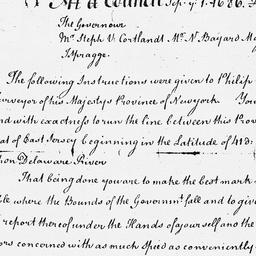 At a Council Sep. y. 1. 1686.
The Governour
Mr. Steph V. Cortlandt Mr. N. Bayard Ma
J. Spragge.
The following Instructions were given to Philip
Surveyor of his Majestys Province of Newyork. You
and with exactness to run the line between this Prov
at of East Jersey beginning in the Latitude of 41D:
on Delaware River
That being done you are to make the best mark
le where the Bounds of the Governmt. fall and to giv
report thereof under the Hands of yourself and the
ors concerned with as much Speed as conveniently